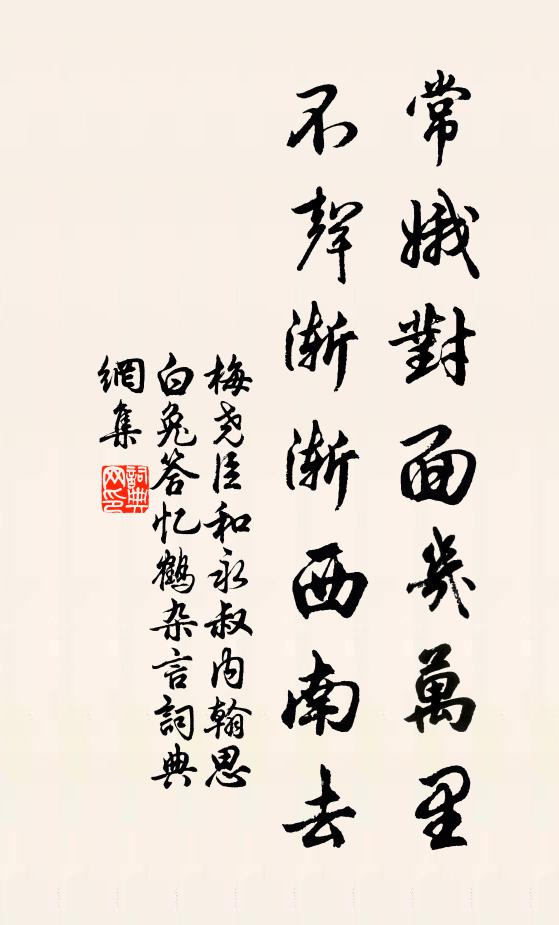 常娥對面幾萬里
不聲漸漸西南去
梅尧臣和永叔内翰思
白兔答忆鶴杂言詞典
網集
詞典
网印